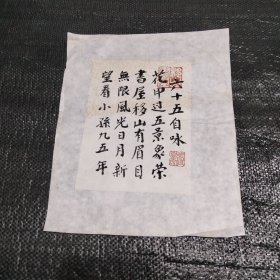 六十五自咏
花甲过五景象荣
书屋移山有眉目
無限風光日月新
望着小孫九五年